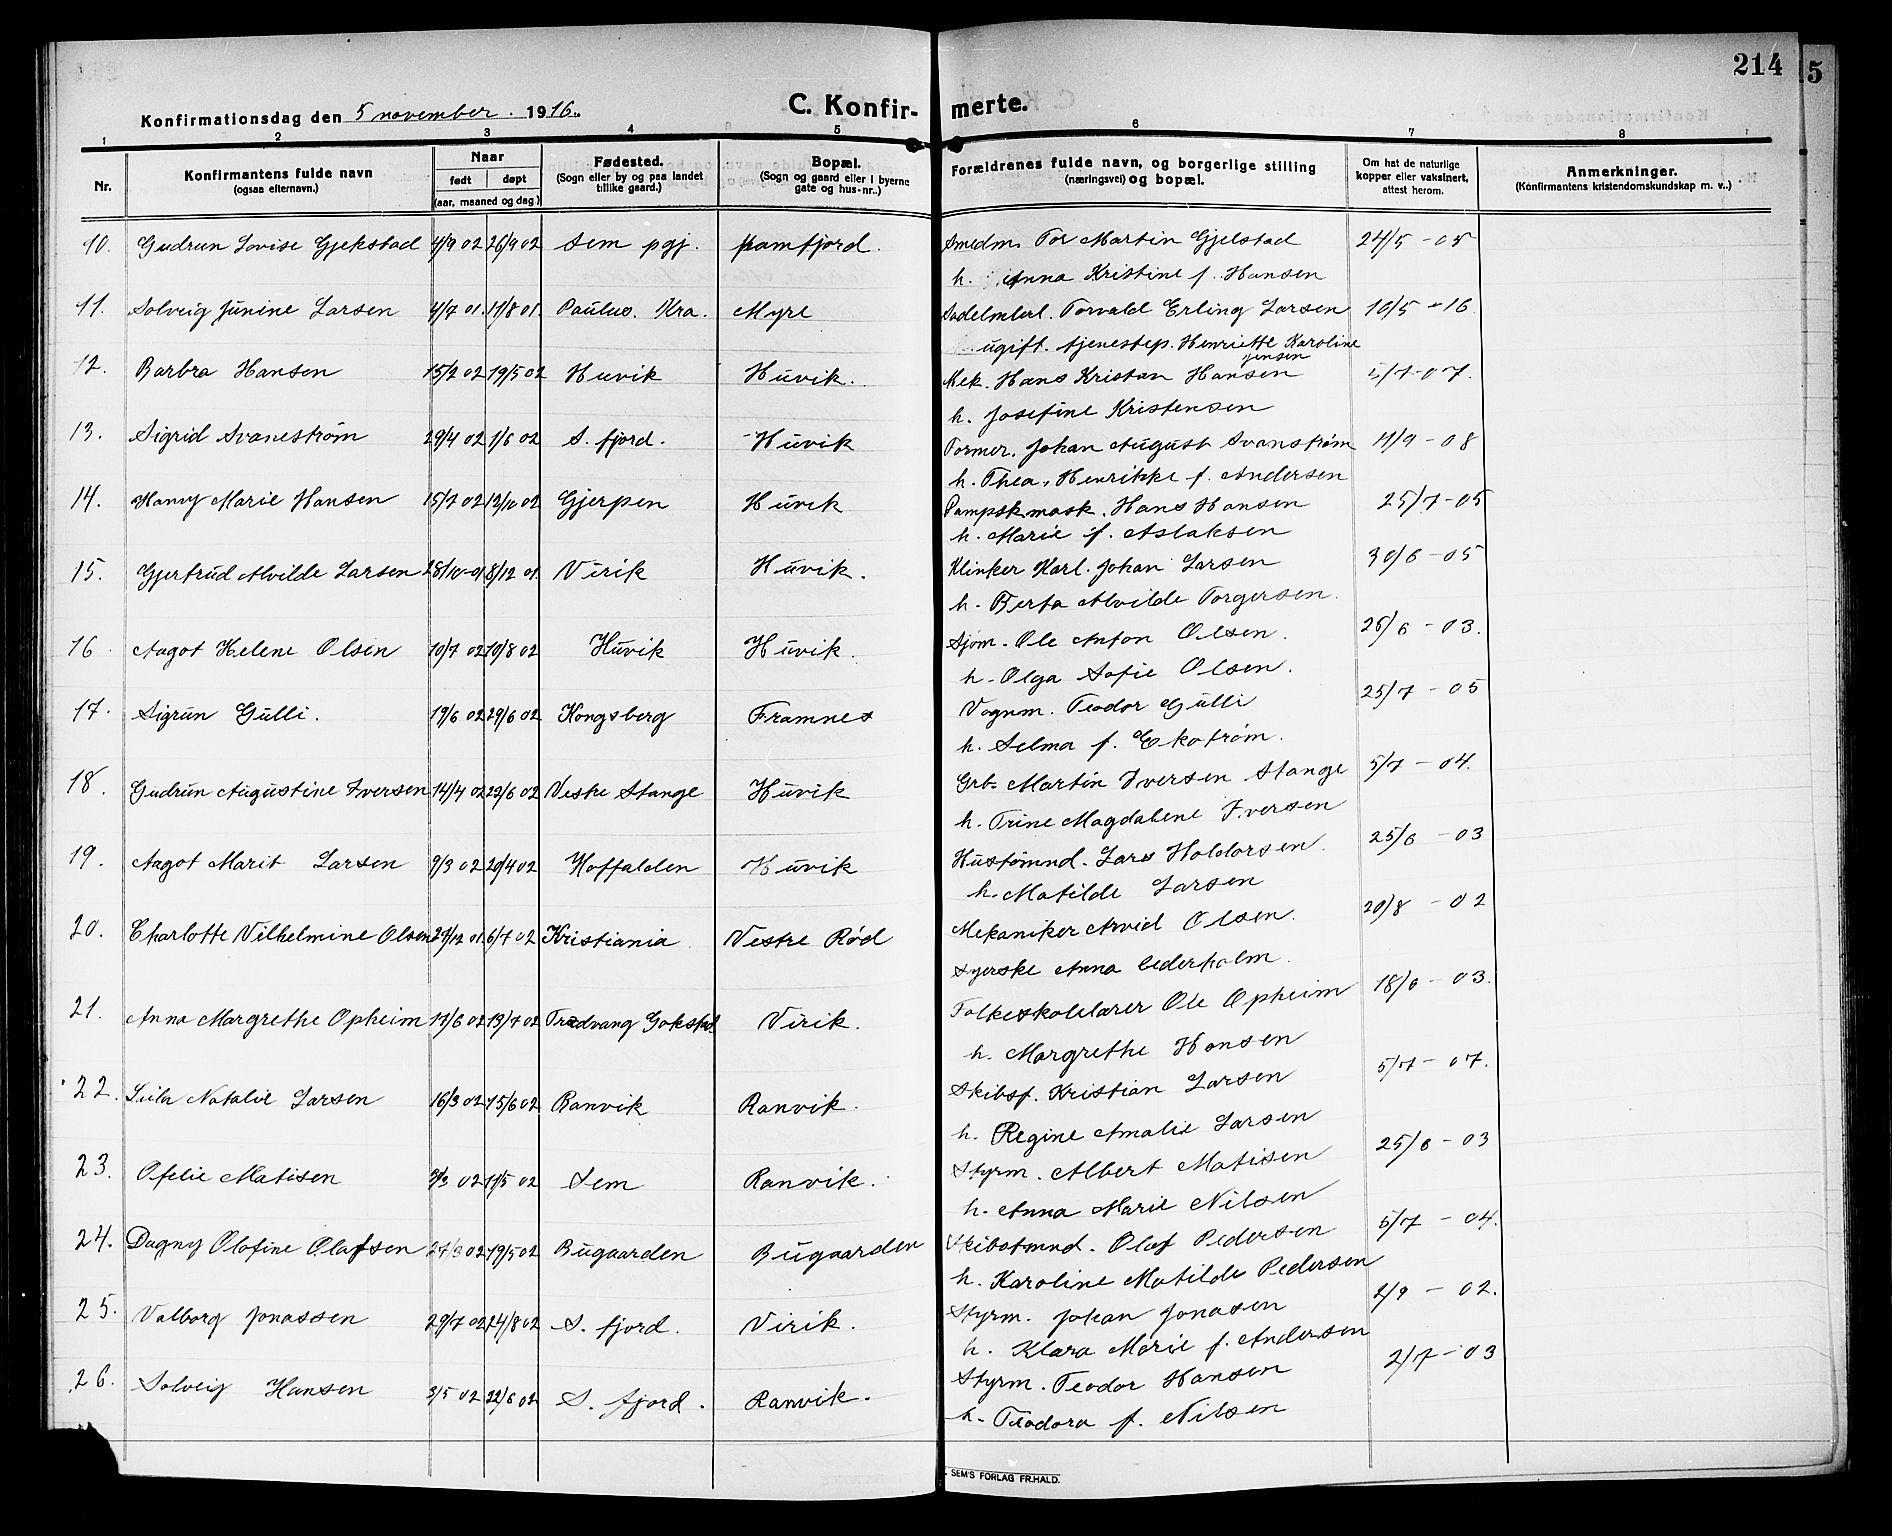 214
5
Konfirmationsdag den 5 november. 1916.
C. Konfir- merte.
1 2 3 4 5 6 7 8
Nr.
Konfirmantens fulde navn
(ogsaa efternavn.)
Naar
født døpt
(aar, maaned og dag)
Fødested.
(Sogn eller by og paa landet
tillike gaard.)
Bopæl.
(Sogn og gaard eller i byerne
gate og hus-nr..)
Forældrenes fulde navn, og borgerlige stilling
(næringsvei) og bopæl.
Om hat de naturlige
kopper eller vaksinert,
attest herom.
Anmerkninger.
(Konfirmantens kristendomskundskap m. v..)
10. Gudrun Lovise Gjekstad 4/9 02 26/9 02 Sem pgj. Framfjord. Smedm. Tor Martin Gjelstad 24/5 - 05
h. Anna Kristine f. Hansen
11. Solveig Junine Larsen 4/7 01. 11/8 01. Paulus. Kra. Myre Torvald Erling Larsen 10/5 - 16
ugift. tjenestep. Henriette Karoline
Jensen
12. Barbra Hansen 15/2 02 19/5 02 Huvik Huvik. Mek. Hans Kristan Hansen 5/7-07.
h. Josefine Kristensen
13. Sigrid Svanestrøm 29/4 02 1/6 02 S. fjord. Huvik Former. Johan August Svanstrøm 11/9 - 08
h. Thea, Henrikke f. Andersen
14. Hanny Marie Hansen 15/7 02 12/10 02 Gjerpen Huvik Pampsk mask. Hans Hansen 25/7-05
h. Marie f. Aslaksen
15. Gjertrud Alvilde Larsen 28/10-01. 8/12 01. Virik Huvik. Klinker Karl. Johan Larsen 30/6 - 05
h. Berta Alvilde Torgersen.
16. Aagot Helene Olsen 10/7 02 10/8 02 Huvik Huvik. Sjøm. Ole Anton Olsen. 26/6 - 03.
h. Olga Sofie Olsen.
17. Sigrun Gulli. 19/6 02 29/6 02 Kongsberg Framnes Vognm. Teodor Gulli 25/7 - 05
h. Selma f. Ekstrøm.
18. Gudrun Augustine Iversen 14/4 02 22/6 02 Vestre Stange Huvik Grb. Martin Iversen Stange 5/7 - 04.
h. Trine Magdalene Iversen
19. Aagot Marit Larsen 9/3 02 20/4 02 Hoffalden Huvik Hustømnd. Lars Holdorsen. 25/6 - 03
h. Matilde Larsen
20. Charlotte Vilhelmine Olsen 27/12 01. 6/7 02 Kristiania Vestre Rød Mekaniker Arvid Olsen. 20/8 - 02
syerske Anna Cederholm.
21. Anna Margrethe Opheim 11/6 02 13/7 02 Tredvang Gokstad Virik. Folkeskolelærer Ole Opheim 18/6 - 03.
h. Margrethe Hansen
22. Natalie Larsen 16/3 02 15/6 02 Ranvik Ranvik. Skibsf. Kristian Larsen 5/7 - 07.
h. Regine Amalie Larsen
23. Ofelie Matisen 3/3 02 11/5 02 Sem Ranvik. Styrm. Albert Matisen 25/6 - 03
h. Anna Marie Nilsen
24. Dagny Olofine Olafsen 27/3 02 19/5 02 Bugaarden Bugaarden Skibstmnd. Olaf Pedersen 5/7 - 04.
h. Karoline Matilde Pedersen
25. Valborg Jonassen 29/7 02 24/8 02 S. fjord. Virik. Styrm. Johan Jonasen 2/9 - 02.
h. Klara Marie f. Andersen
26. Solveig Hansen 3/5 02 22/6 02 S. fjord. Ranvik. Styrm. Teodor Hansen 2/7 - 03
h. Teodora f. Nilsen
SEM'S FORLAG FR.HALD.